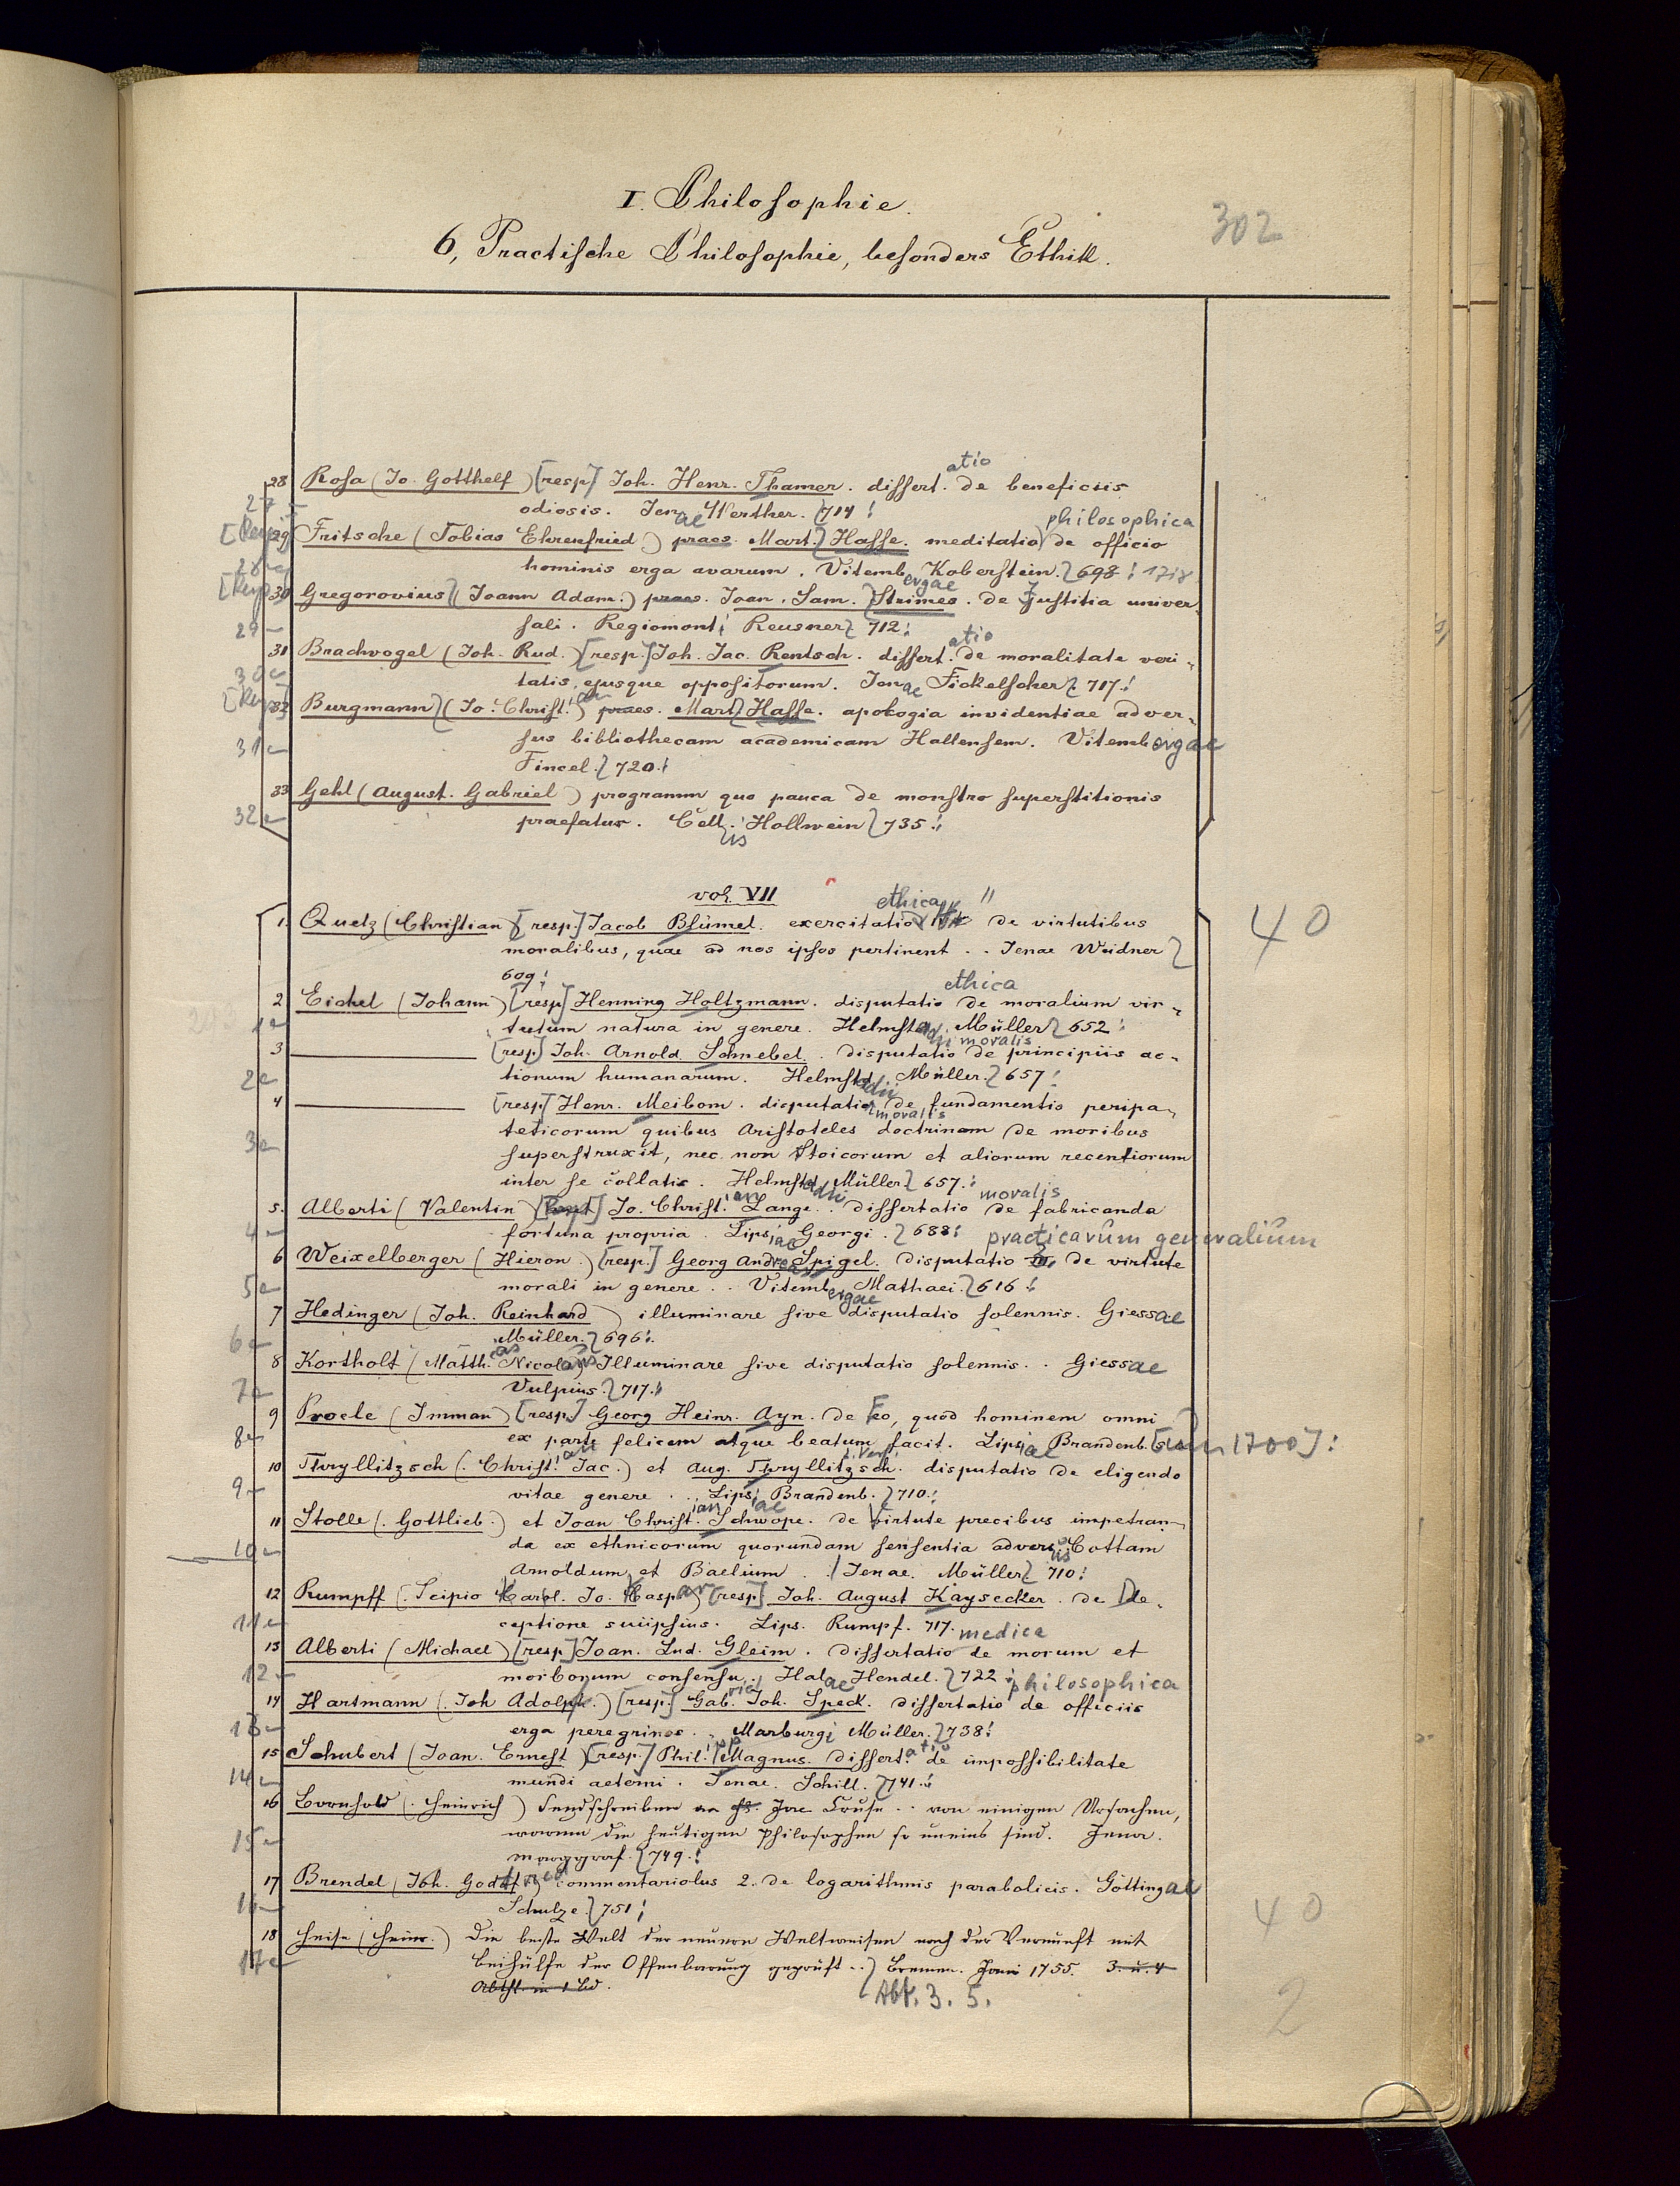 I. Philosophie.
302
6, Practische Philosophie, besonders Ethik.
28 Rosa (Jo. Gotthelf) [resp] Joh. Henr. Thamer. dissertatio de beneficiis
27
odiosis. Jenae Werther. 714
29 Fritsche (Tobias Ehrenfried) praes. Mart. Hasse. meditatio philosophica de officio
28
hominis erga avarum. Vitembergae Koberstein. 698 1718
30 Gregorovius (Joann Adam.) praes. Joan. Sam. Strimes. de Justitia univer-
29
sali. Regiomonti Reusner 712
31 Brachvogel (Joh. Rud.) [resp.] Joh. Jac. Rentsch. dissertatio de moralitate veri-
30
tatis, ejusque oppositorum. Jenae Fickelscher 717
32 Burgmann (Jo. Christian) praes. Mart. Hasse. apologia invidentiae adver-
31
sus bibliothecam academicam Hallensem. Vitembergae
Fincel. 720
33 Gehl (August. Gabriel) programm quo pauca de monstro superstitionis
32
praefatur. Cellis Hollwein 735
vol. VII
1. Quetz (Christian) [resp.] Jacob Blümel. exercitatio ethica de virtutibus
40
moralibus, quae ad nos ipsos pertinent .. Jenae Weidner
609
2 Eichel (Johann) [resp] Henning Holtzmann. disputatio ethica de moralium vir-
1
tutum natura in genere. Helmstadii Müller 652
3 [resp] Joh. Arnold Schnebel. disputatio moralis de principiis ac-
2
tionum humanarum. Helmstadii Müller. 657
4 [resp] Henr. Meibom. disputatio moralis de fundamentis peripa-
teticorum quibus Aristoteles doctrinam de moribus
3
superstruxit, nec non Stoicorum et aliorum recentiorum
inter se collatis. Helmstadii Müller 657.
5. Alberti (Valentin) [resp] Jo. Christian Lange. dissertatio moralis de fabricanda
4
fortuna propria. Lipsiae Georgi. 688 practicarum generalium
6 Weixelberger (Hieron.) [resp.] Georg Andreas Spigel. disputatio de virtute
5
morali in genere .. Vitembergae Mathaei. 616
7 Hedinger (Joh. Reinhard) illuminare sive disputatio solennis. Giessae
6
Müller. 696
8 Kortholt (Matth. Nicolaus) Illuminare sive disputatio solennis .. Giessae
7
Vulpius. 717
9 Proele (Imman) [resp.] Georg Heinr. Ayn. de Eo, quod hominem omni
8
ex parte felicem atque beatum facit. Lipsiae Brandenb. [um 1700]
10 Thryllitzsch (Christian Jac.) et Aug. Thryllitzsch. disputatio de eligendo
9
vitae genere .. Lips. Brandenb. 710
11 Stolle (Gottlieb) et Joan Christian Schwope. de Virtute precibus impetran-
10
da ex ethnicorum quorundam sensentia adversus Cottam
Arnoldum et Baelium .. Jenae. Müller 710
12 Rumpff (Scipio Carol. Jo. Caspar) [resp] Joh. August Kaysecker. de De-
11
ceptione suiipsius. Lips. Rumpf. 717.
13 Alberti (Michael) [resp] Joan. Lud. Gleim. dissertatio medica de morum et
12
morborum consensu. Halae Hendel. 722
14 Hartmann (Joh Adolph.) [resp.] Gabriel Joh. Speck. dissertatio philosophica de officiis
13
erga peregrinos .. Marburgi Müller. 738
15 Schubert (Joan. Ernest) [resp.] Phil. Magnus. dissertatio de impossibilitate
14
mundi aeterni. Jenae. Schill. 741
16 Bornhold (Heinrich) Sendschreiben an Cruse .. von einigen Ursachen,
15
warum die heutigen Philosophen so uneins sind. Jena.
Marggraf. 749.
17 Brendel (Joh. Gottfried) commentariolus 2. de logarithmis parabolicis. Göttingae
16
Schulze. 751
40
18 Heise (Heinr.) Die beste Welt der neuern Weltweisen nach der Vernunft mit
17
Beihülfe der Offenbarung geprüft .. Bremen. Jani 1755. 3. u. 4
Abth. in 1 Bd.
Abt. 3. 5.
2